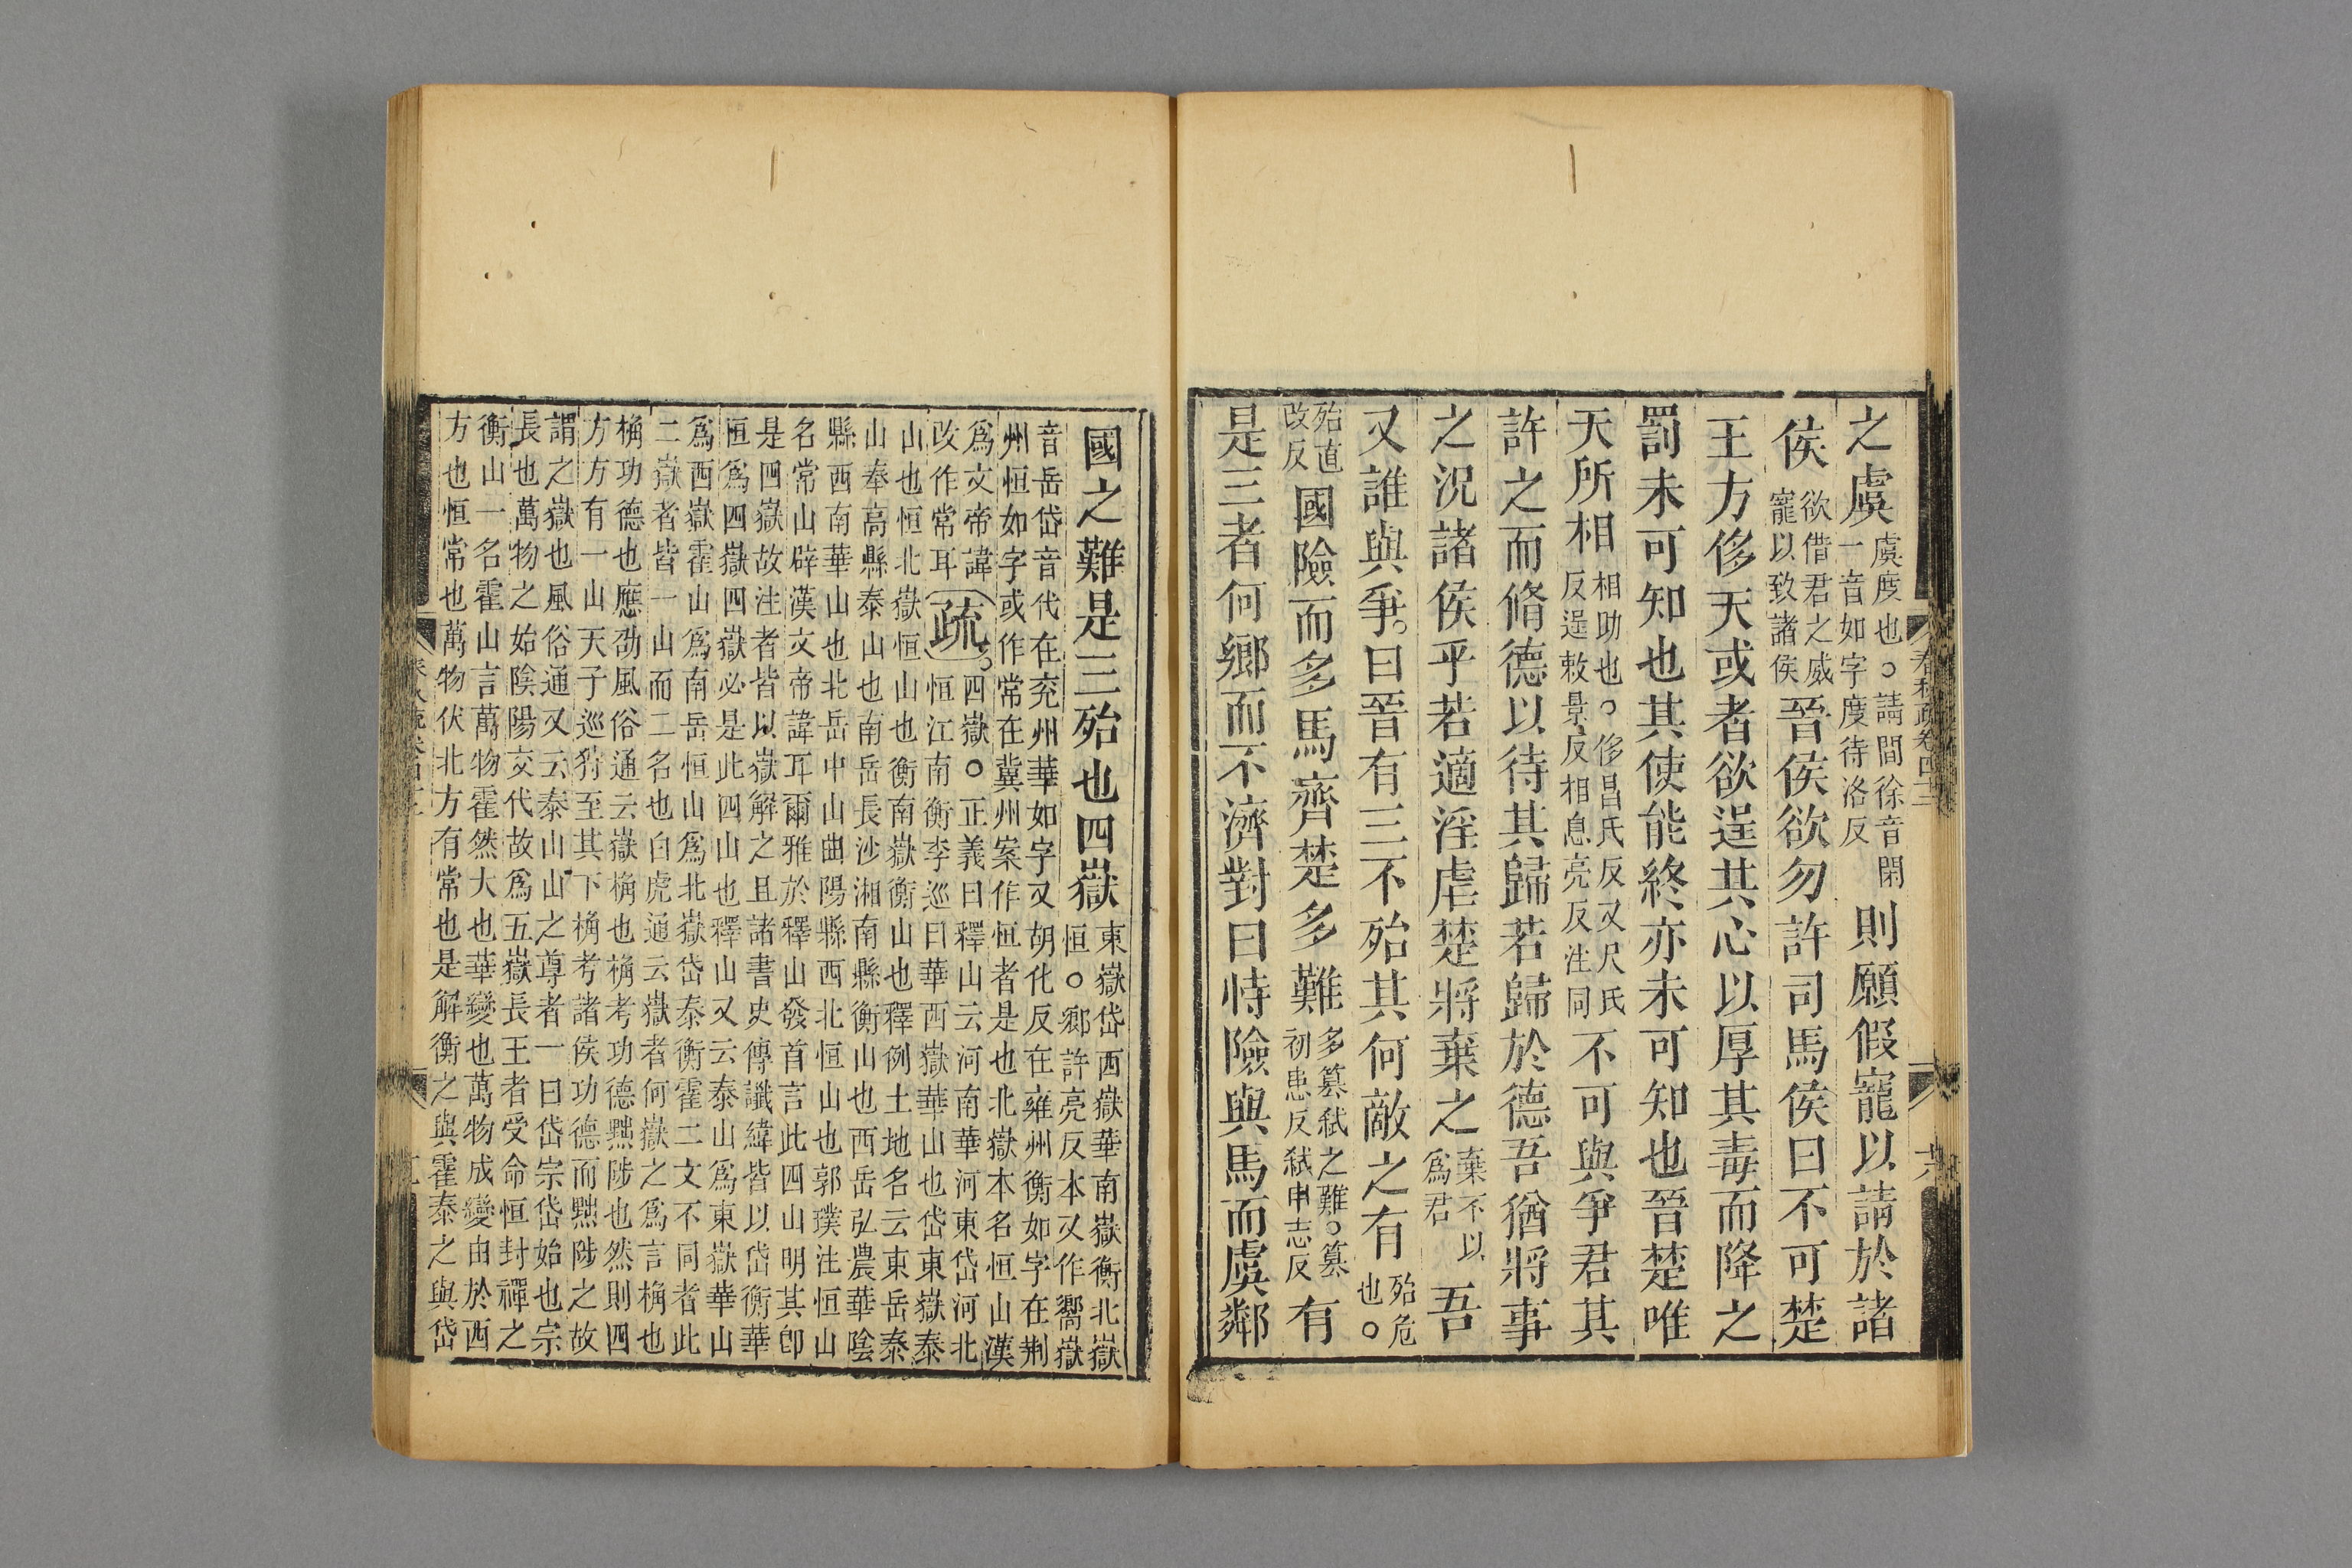 之虞虞度也○請間徐音閑一音如字度待洛反則願假寵以請於諸
侯欲借君之威寵以致諸侯晉侯欲勿許司馬侯曰不可楚
王方侈天或者欲逞其心以厚其毒而降之
罰未可知也其使能終亦未可知也晉楚唯
天所相相助也○侈昌氏反又尺氏反逞敕景反相息亮反注同不可與爭君其
許之而脩德以待其歸若歸於德吾猶將事
之況諸侯乎若適淫虐楚將棄之棄不以爲君吾
又誰與爭○曰晉有三不殆其何敵之有殆危也○
殆直改反國險而多馬齊楚多難多篡弒之難○篡初患反弒申志反有
是三者何鄉而不濟對曰恃險與馬而虞鄰
國之難是三殆也四嶽東嶽岱西嶽華南嶽衡北嶽恒○鄉許亮反本又作嚮嶽
音岳岱音代在兖州華如字又胡化反在雍州衡如字在荆
州恒如字或作常在冀州案作恒者是也北嶽本名恒山漢
爲文帝諱改作常耳疏四嶽○正義曰釋山云河南華河東岱河北
恒江南衡李巡曰華西嶽華山也岱東嶽泰
山也恒北嶽恒山也衡南嶽衡山也釋例土地名云東岳泰
山奉高縣泰山也南岳長沙湘南縣衡山也西岳弘農華陰
縣西南華山也北岳中山曲陽縣西北恒山也郭璞注恒山
名常山辟漢文帝諱耳爾雅於釋山發首言此四山明其卽
是四嶽故注者皆以嶽解之且諸書史傳讖緯皆以岱衡華
恒爲四嶽四嶽必是此四山也釋山又云泰山爲東嶽華山
爲西嶽霍山爲南岳恒山爲北嶽岱泰衡霍二文不同者此
二嶽者皆一山而二名也白虎通云嶽者何嶽之爲言桷也
桷功德也應劭風俗通云嶽桷也桷考功德黜陟也然則四
方方有一山天子巡狩至其下桷考諸侯功德而黜陟之故
謂之嶽也風俗通又云泰山山之尊者一曰岱宗岱始也宗
長也萬物之始陰陽交代故爲五嶽長王者受命恒封禪之
衡山一名霍山言萬物霍然大也華變也萬物成變由於西
方也恒常也萬物伏北方有常也是解衡之與霍泰之與岱